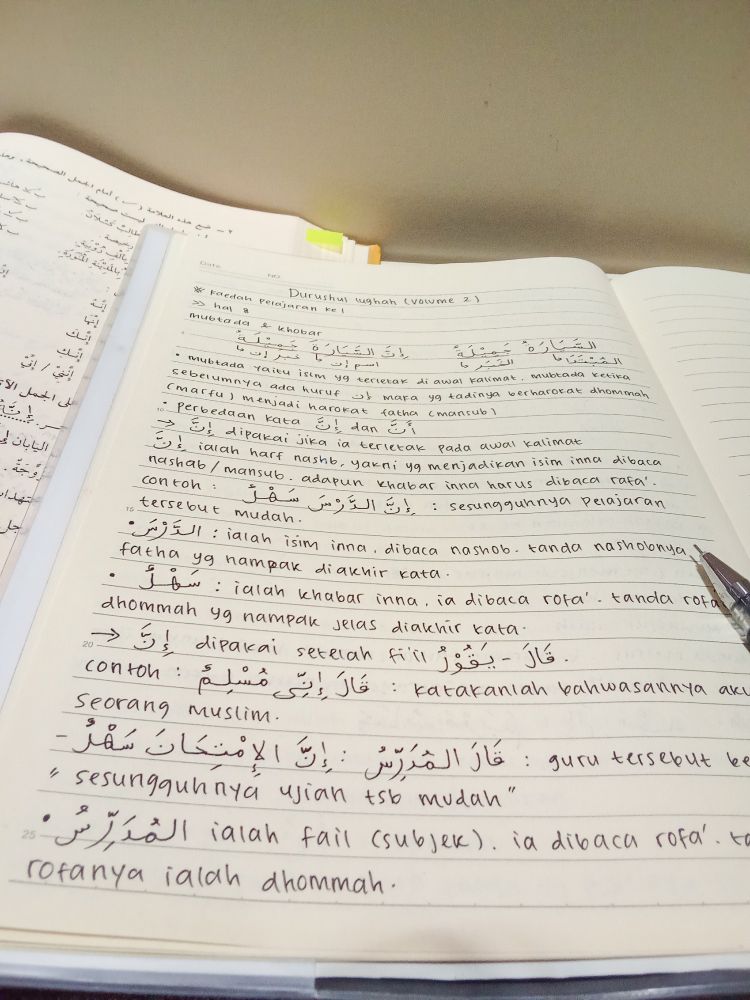 Date
NO
Durushul lughah (volume 2)
* kaedah pelajaran ke 1
>> hal 8
mubtada & khobar
إِنَّ السَّيَّارَةَ جَمِيْلَةٌ السَّيَّارَةُ جَمِيْلَةٌ
اسم إن خبر إن المُبْتَدَأ الخَبَر
• mubtada yaitu isim yg terletak di awal kalimat. mubtada ketika
sebelumnya ada huruf إن maka yg tadinya berharokat dhommah
(marfu) menjadi harokat fatha (mansub)
• perbedaan kata إِنَّ dan أَنَّ
→ إِنَّ dipakai jika ia terletak pada awal kalimat
إِنَّ ialah harf nashb, yakni yg menjadikan isim inna dibaca
nashab/mansub. adapun khabar inna harus dibaca rafa'.
contoh : إِنَّ الدَّرْسَ سَهْلٌ : sesungguhnya pelajaran
tersebut mudah.
• الدَّرْسَ : ialah isim inna. dibaca nashob. tanda nashobnya
fatha yg nampak diakhir kata.
• سَهْلٌ : ialah khabar inna. ia dibaca rofa'. tanda rofa
dhommah yg nampak jelas diakhir kata.
→ إِنَّ dipakai setelah fi'il قَالَ - يَقُوْلُ.
contoh : قَالَ إِنِّي مُسْلِمٌ : katakanlah bahwasannya aku
seorang muslim.
– قَالَ المُدَرِّسُ : إِنَّ الإِمْتِحَانَ سَهْلٌ : guru tersebut be
" sesungguhnya ujian tsb mudah"
• المُدَرِّسُ ialah fail (subjek). ia dibaca rofa'. ta
rofanya ialah dhommah.
إِنَّهُ
إِنَّهَا
إِنَّكَ
إِنَّكِ
إِنَّنِيْ / إِنِّيْ